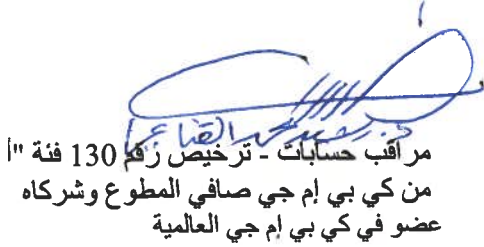 د. رشيد محمد القناعي
مراقب حسابات - ترخيص رقم 130 فئة "أ
من كي بي إم جي صافي المطوع وشركاه
عضو في كي بي إم جي العالمية